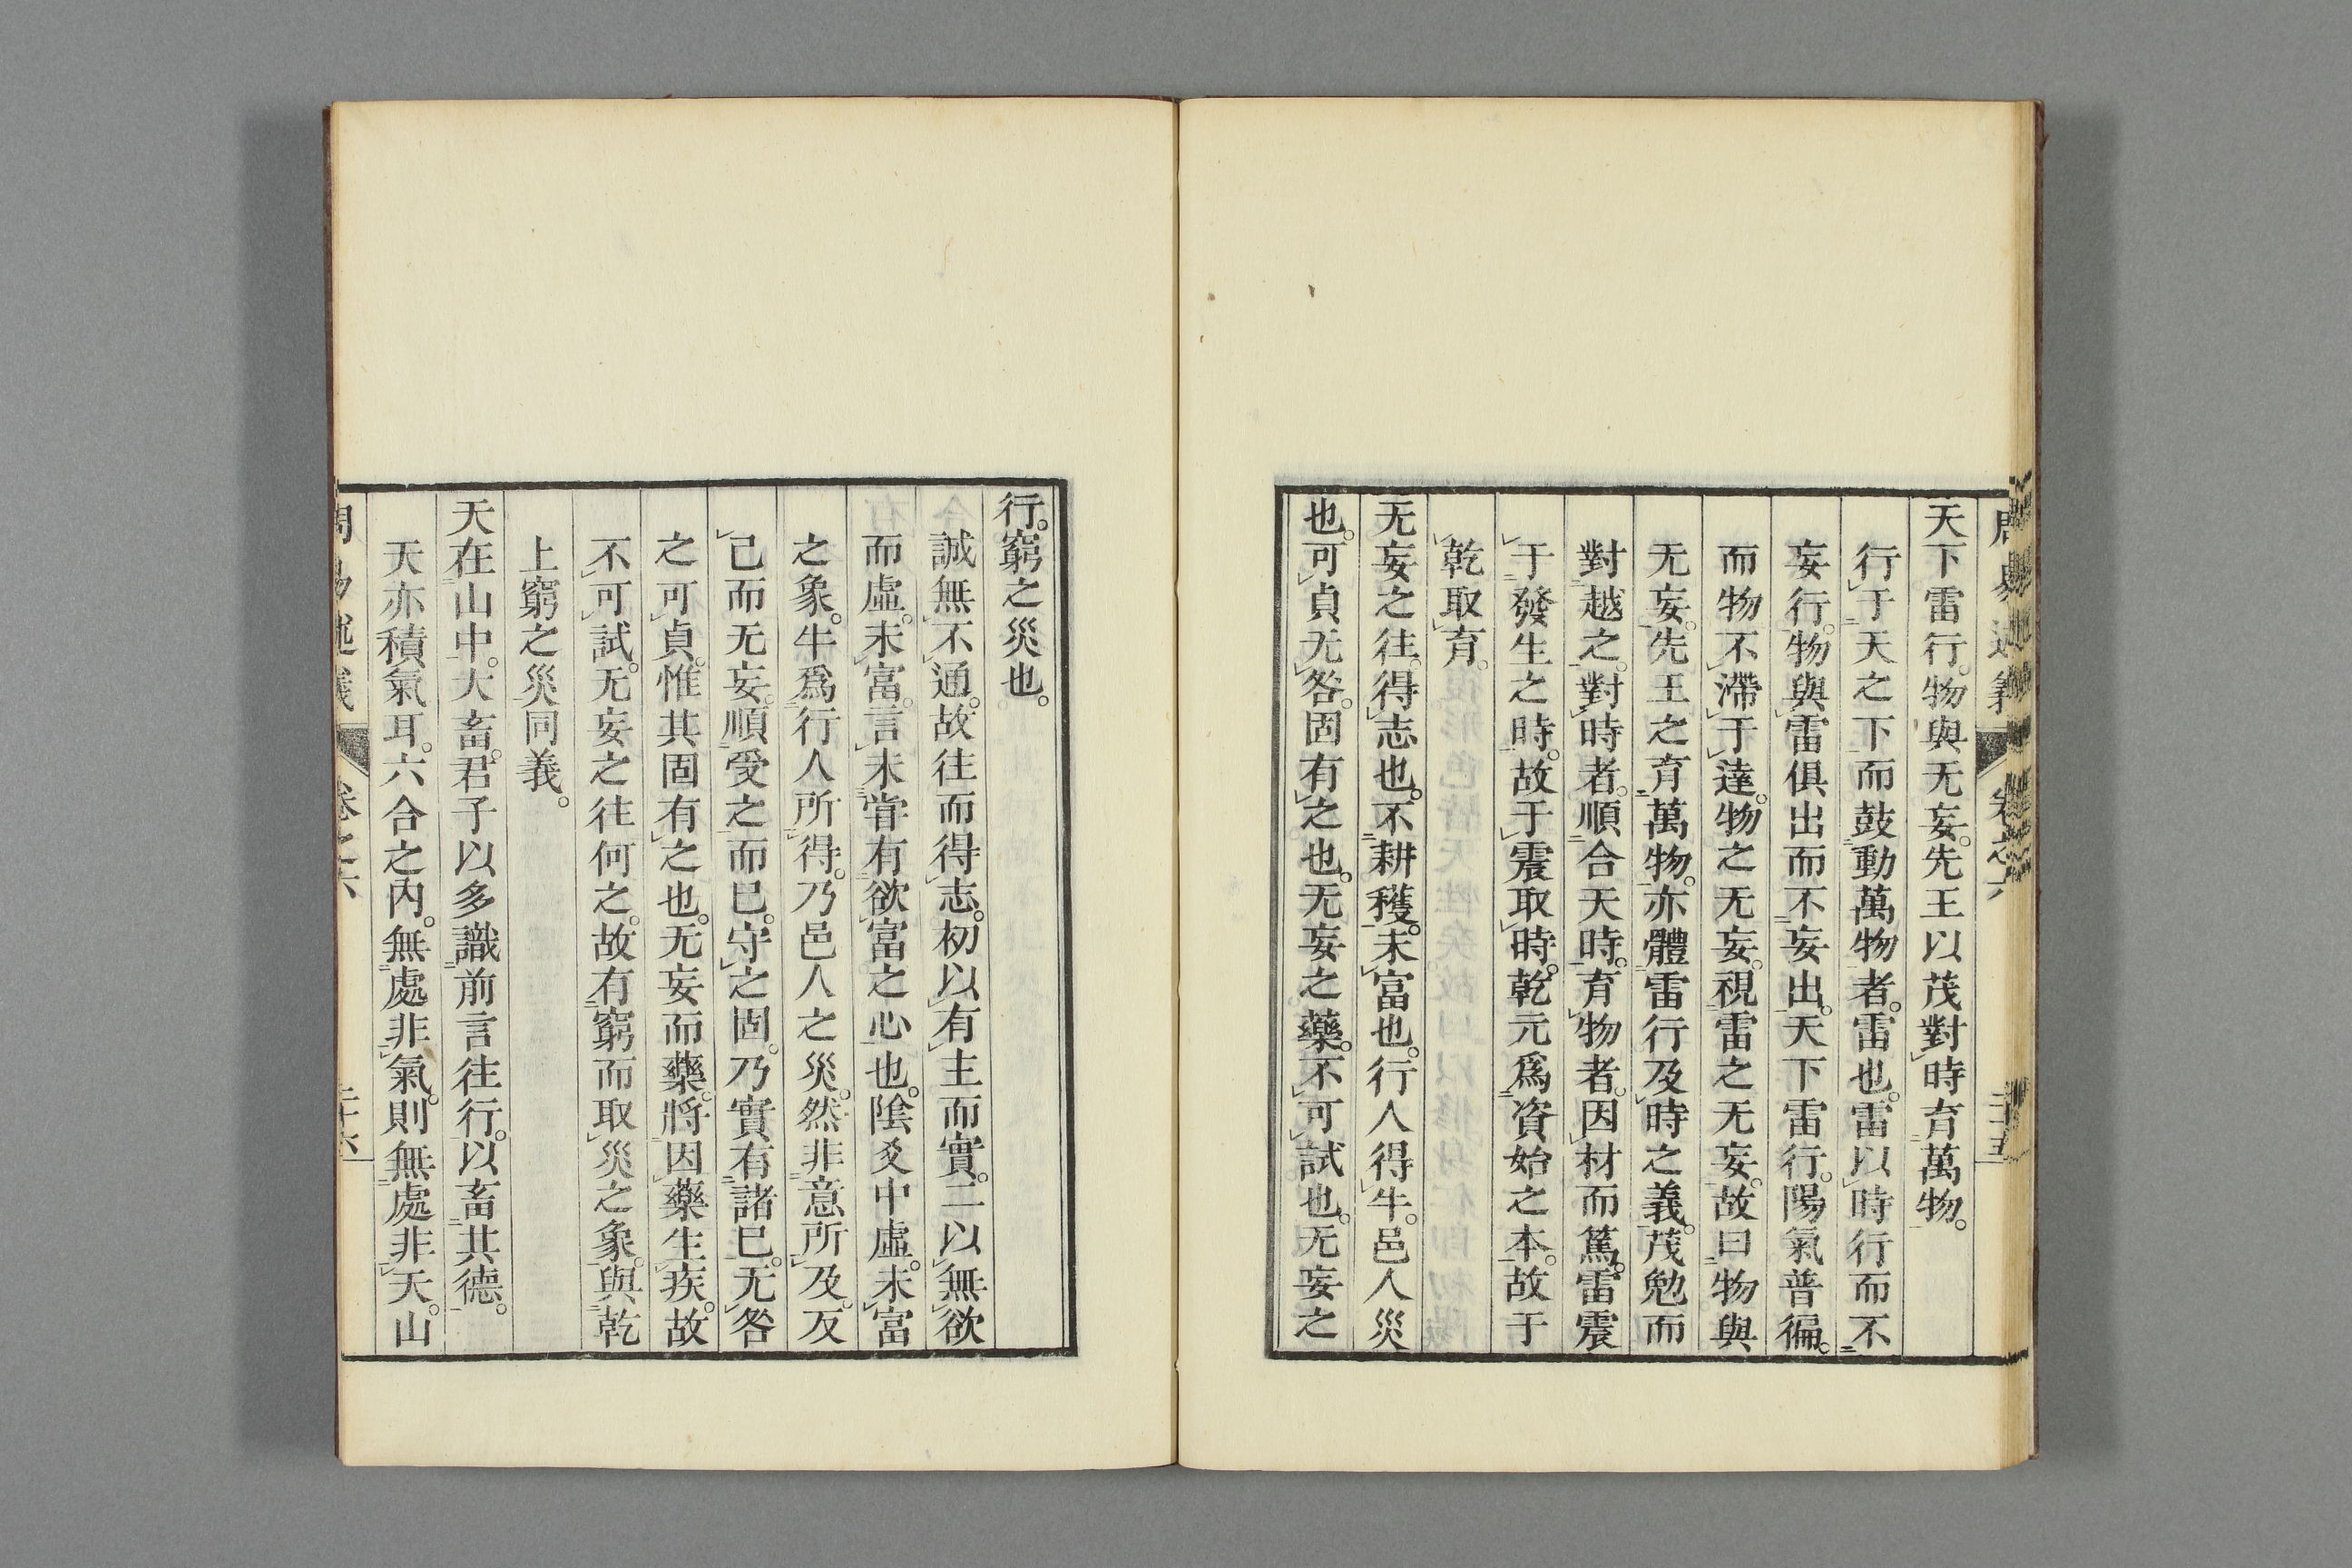 天下雷行。物與无妄。先王以茂對時育萬物。
行于天之下而鼓動萬物者。雷也。雷以時行而不
妄行。物與雷俱出而不妄出。天下雷行。陽氣普徧。
而物不滯于達。物之无妄。視雷之无妄。故曰物與
无妄。先王之育萬物。亦體雷行及時之義。茂勉而
對越之。對時者。順合天時。育物者。因材而篤。雷震
于發生之時。故于震取時。乾元爲資始之本。故于
乾取育。
无妄之往。得志也。不耕穫。未富也。行人得牛。邑人災
也。可貞无咎。固有之也。无妄之藥。不可試也。无妄之
行。窮之災也。
誠無不通。故往而得志。初以有主而實。二以無欲
而虛。未富。言未嘗有欲富之心也。陰爻中虛。未富
之象。牛爲行人所得。乃邑人之災。然非意所及。反
己而无妄。順受之而已。守之固。乃實有諸己。无咎
之可貞。惟其固有之也。无妄而藥。將因藥生疾。故
不可試。无妄之往何之。故有窮而取災之象。與乾
上窮之災同義。
天在山中。大畜。君子以多識前言往行。以畜其德。
天亦積氣耳。六合之內。無處非氣。則無處非天。山
周易述義 卷之六 二十六